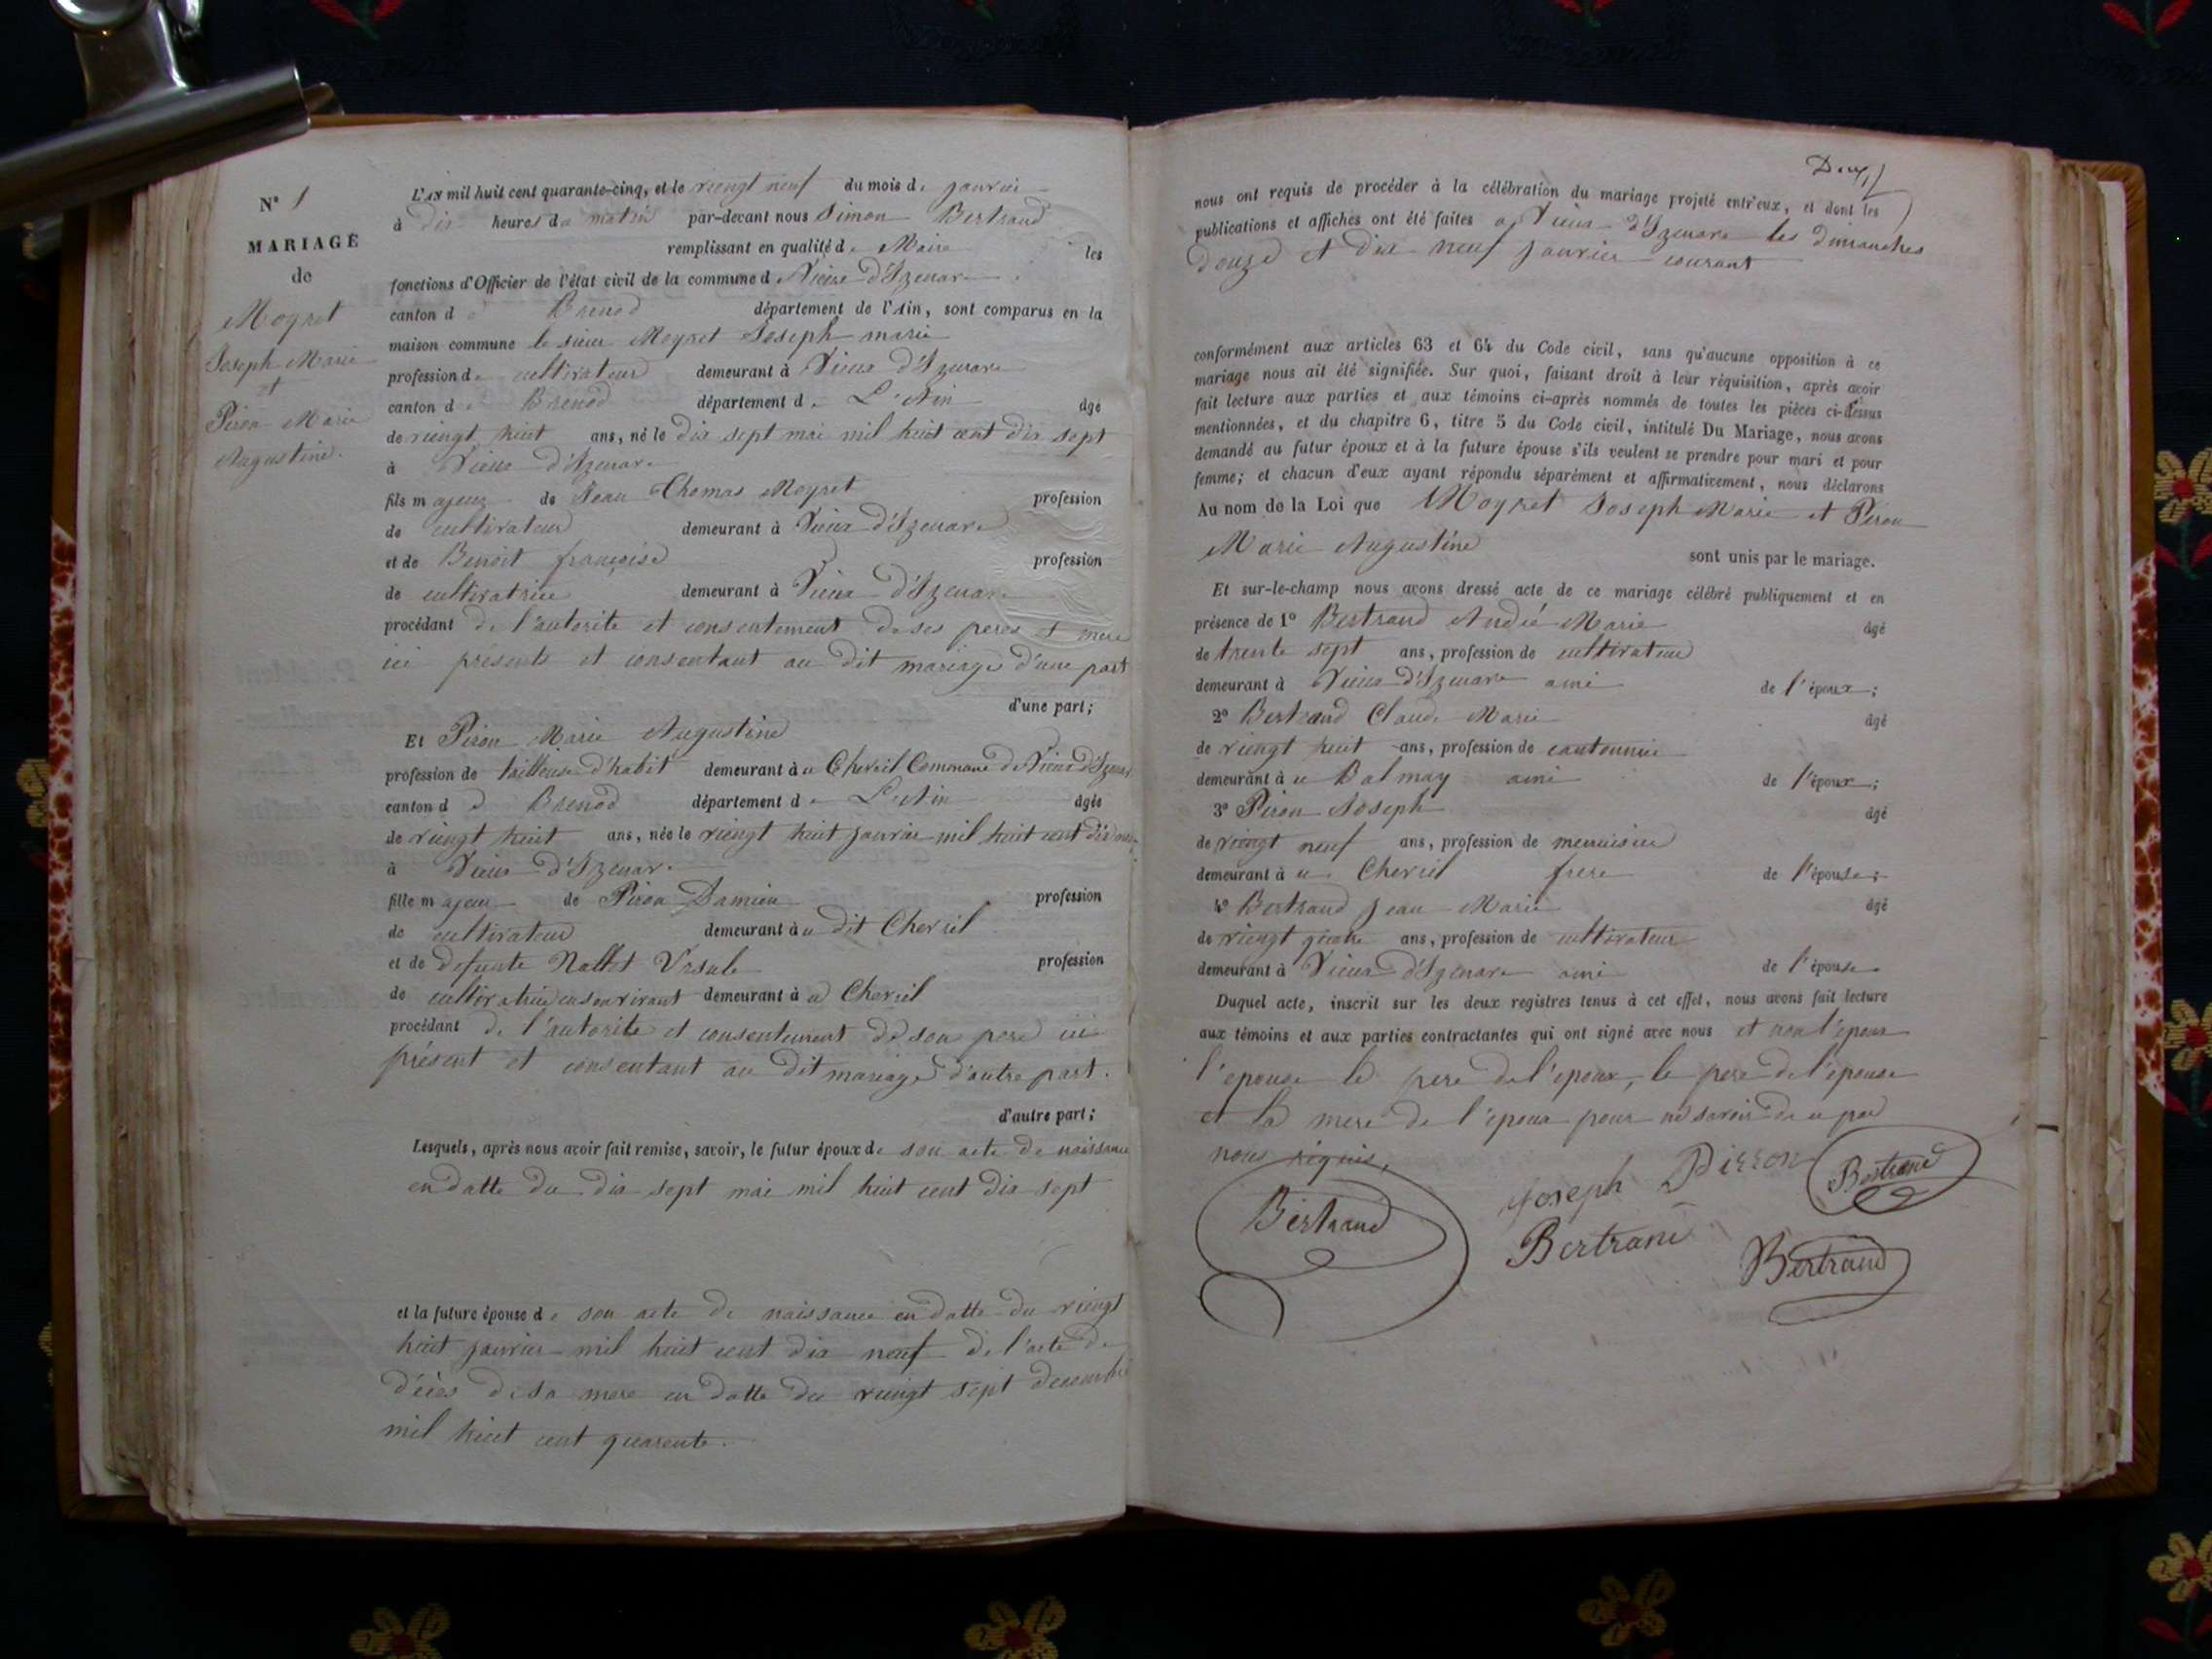 N° 1
MARIAGE
de
Moyret
Joseph Marie
et
Piron Marie
Augustine.
L'AN mil huit cent quarante-cinq, et le vingt neuf du mois de janvier
à dix heures du matin par-devant nous Simon Bertrand
remplissant en qualité de Maire les
fonctions d'Officier de l'état civil de la commune d Vieux d'Izenave
canton d Brenod département de l'Ain, sont comparus en la
maison commune le sieur Moyret Joseph marie
profession de cultivateur demeurant à Vieux d'Izenave
canton de Brenod département de L'Ain âgé
de vingt huit ans, né le dix sept mai mil huit cent dix sept
à Vieux d'Izenave
fils majeur de Jean Thomas Moyret profession
de cultivateur demeurant à Vieux d'Izenave
et de Benoit françoise profession
de cultivatrice demeurant à Vieux d'Izenave
procédant de l'autorite et consentement de ses peres et mere
ici présents et consentant au dit mariage d'une part
d'une part;
Et Piron Marie Augustine
profession de tailleuse d'habit demeurant à u Chevril Commune de Vieux d'Izenave
canton d Brenod département de L'Ain âgée
de vingt huit ans, née le vingt huit janvier mil huit cent dix neuf
à Vieux d'Izenave
fille majeur de Piron Damien profession
de cultivateur demeurant à u dit Chevril
et de defunte Nallet Ursule profession
de cultivatrice en son vivant demeurant à u Chevril
procédant de l'autorite et consentement de son pere ici
présent et consentant au dit mariage d'autre part.
d'autre part;
Lesquels, après nous avoir fait remise, savoir, le futur époux de son acte de naissance
en datte du dix sept mai mil huit cent dix sept
et la future épouse de son acte de naissance en datte du vingt
huit janvier mil huit cent dix neuf de l'acte de
décès de sa mere en datte du vingt sept decembre
mil huit cent quarente.
Deux
nous ont requis de procéder à la célébration du mariage projeté entr'eux, et dont les
publications et affiches ont été faites a Vieux d'Izenave les dimanches
douze et dix neuf janvier courant
conformément aux articles 63 et 64 du Code civil, sans qu'aucune opposition à ce
mariage nous ait été signifiée. Sur quoi, faisant droit à leur réquisition, après avoir
fait lecture aux parties et aux témoins ci-après nommés de toutes les pièces ci-dessus
mentionnées, et du chapitre 6, titre 5 du Code civil, intitulé Du Mariage, nous avons
demandé au futur époux et à la future épouse s'ils veulent se prendre pour mari et pour
femme; et chacun d'eux ayant répondu séparément et affirmativement, nous déclarons
Au nom de la Loi que Moyret Joseph Marie et Piron
Marie Augustine sont unis par le mariage.
Et sur-le-champ nous avons dressé acte de ce mariage célébré publiquement et en
présence de 1° Bertrand André Marie âgé
de trente sept ans, profession de cultivateur
demeurant à Vieux d'Izenave ami de l'époux;
2° Bertrand Claude Marie âgé
de vingt huit ans, profession de cantonnier
demeurant à u Balmay ami de l'époux;
3° Piron Joseph âgé
de vingt neuf ans, profession de menuisier
demeurant à u Chevril frere de l'épouse;
4° Bertrand Jean Marie âgé
de vingt quatre ans, profession de cultivateur
demeurant à Vieux d'Izenave ami de l'épouse
Duquel acte, inscrit sur les deux registres tenus à cet effet, nous avons fait lecture
aux témoins et aux parties contractantes qui ont signé avec nous et non l'epoux
l'epouse le pere de l'epoux, le pere de l'epouse
et la mere de l'epoux pour ne savoir de ce par
nous réquis,
Joseph Pirron Bertrand
Bertrand
Bertrand
Bertrand